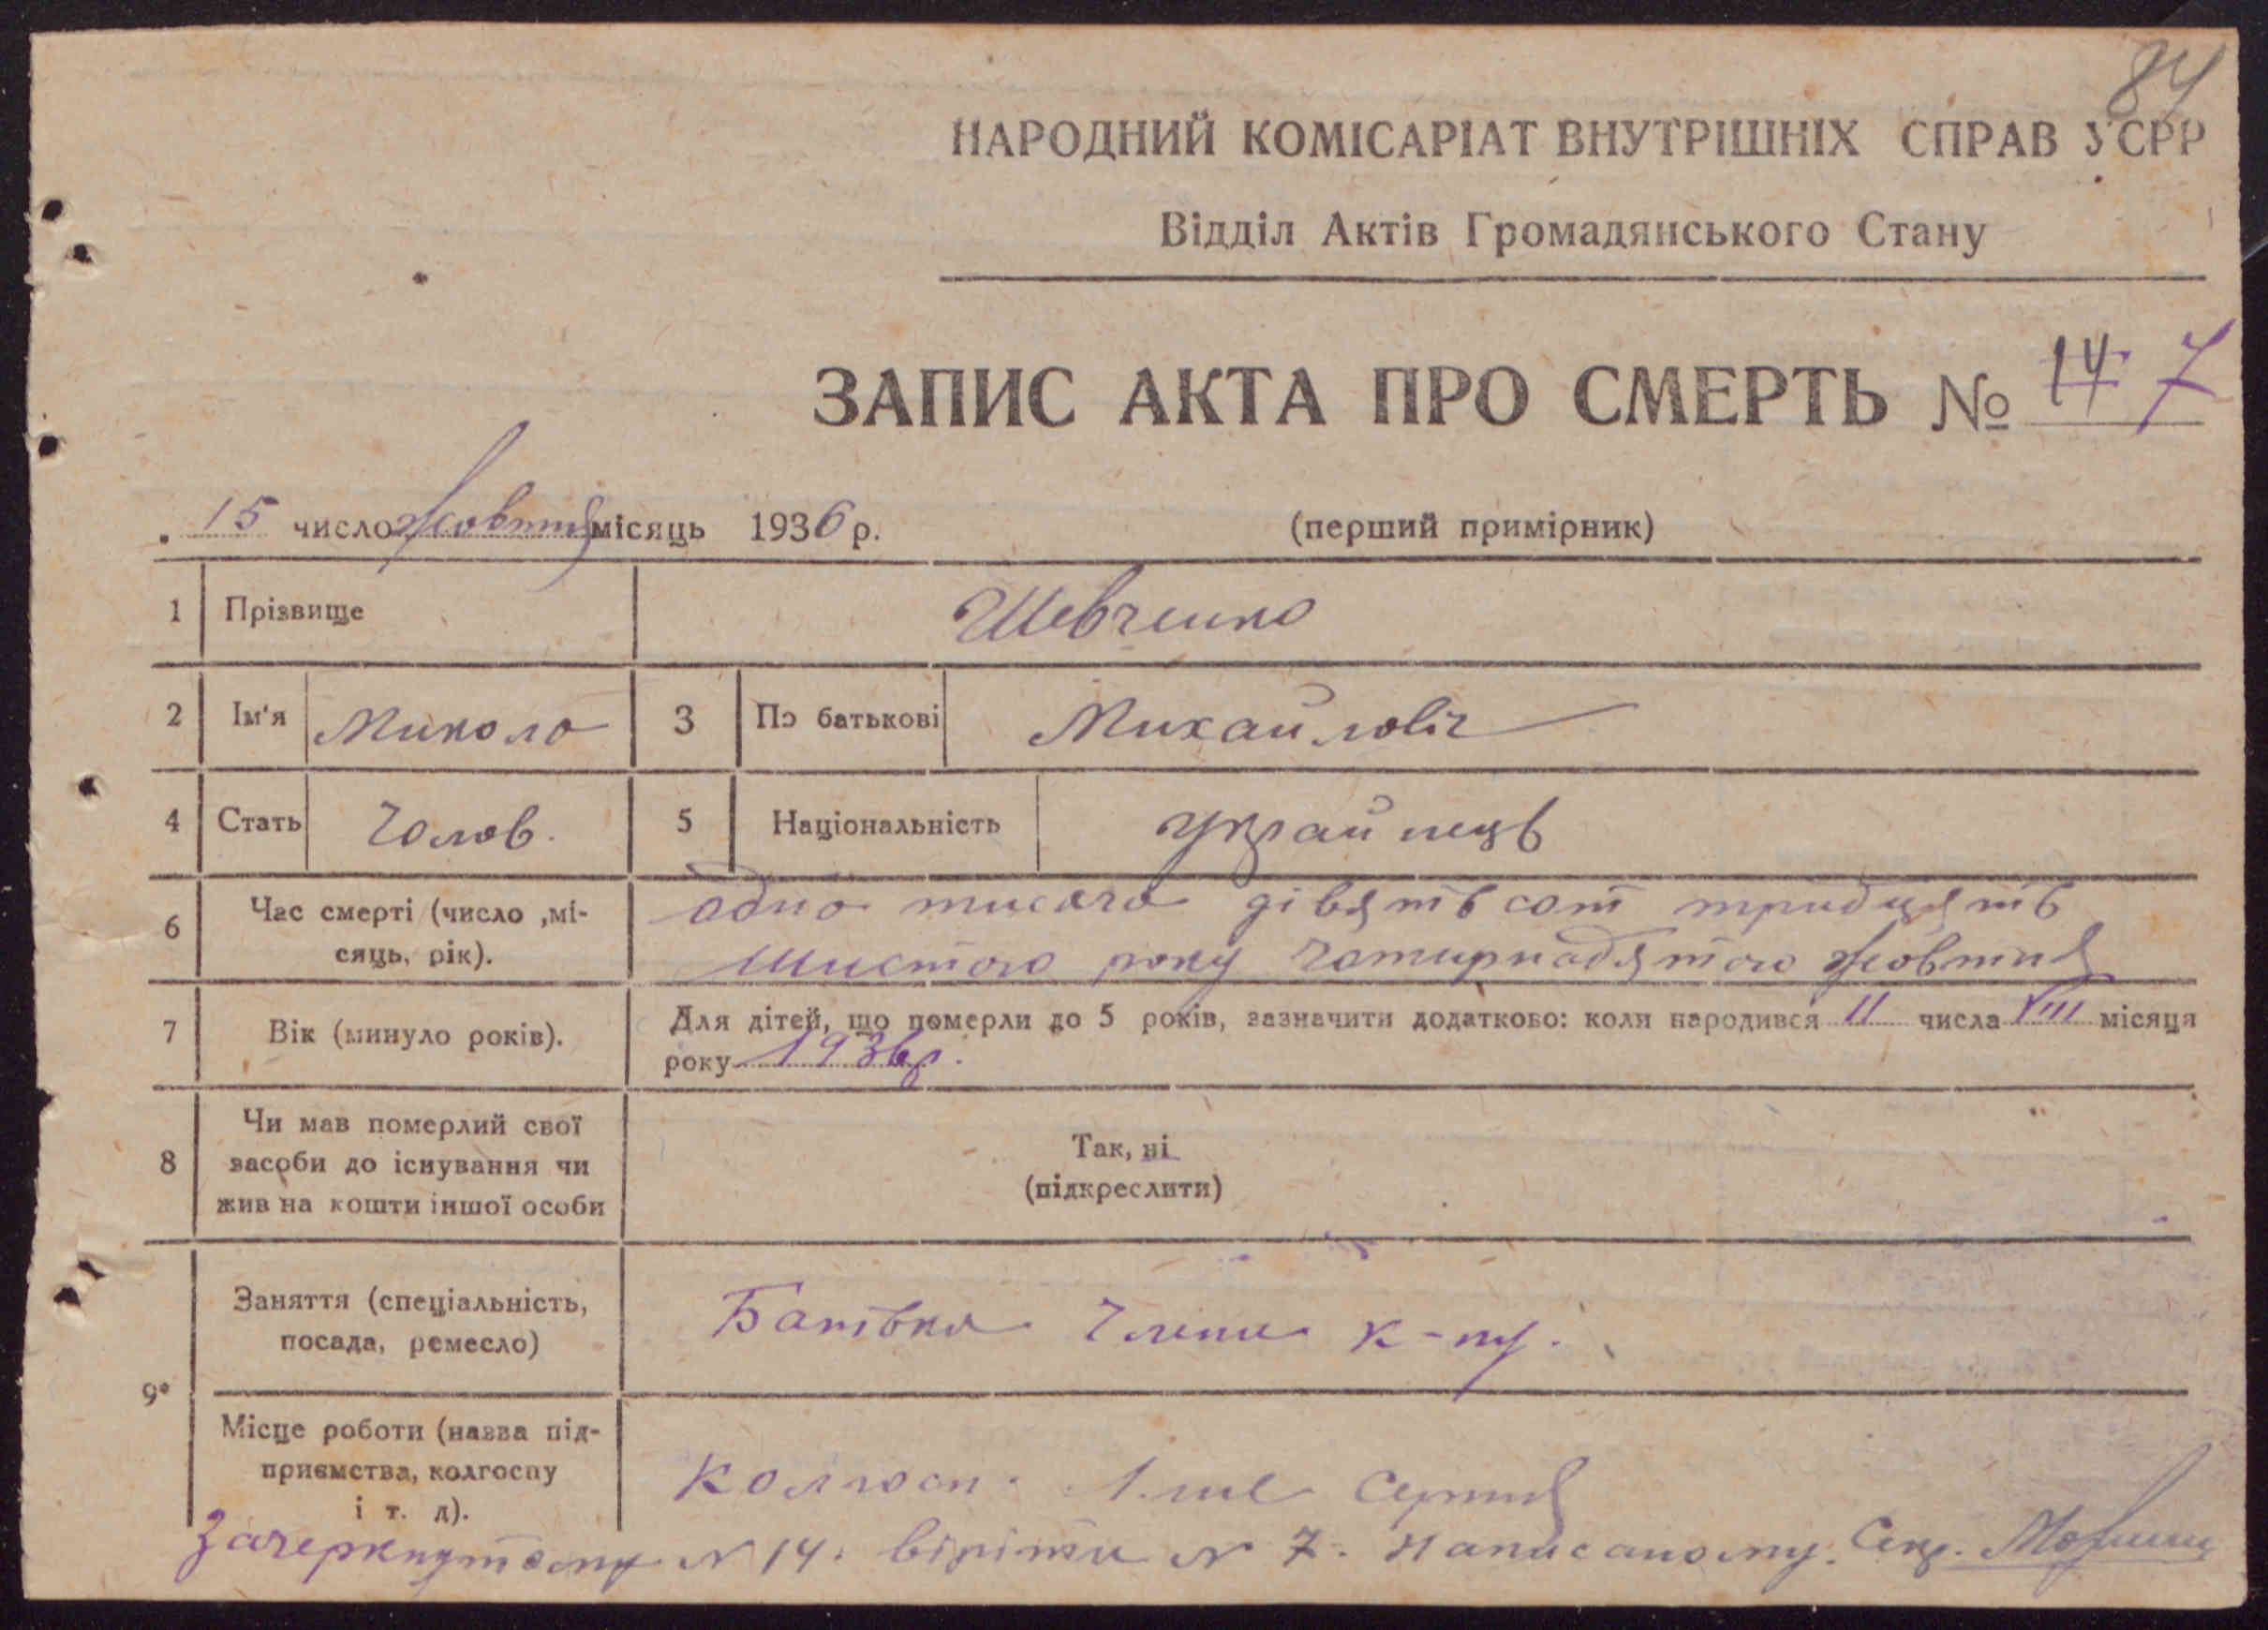 84
НАРОДНИЙ КОМІСАРІАТ ВНУТРІШНІХ СПРАВ УСРР
Відділ Актів Громадянського Стану
ЗАПИС АКТА ПРО СМЕРТЬ № 14 7
15 число жовтня місяць 1936 р. (перший примірник)
1 Прізвище Шевченко
2 Ім'я Микола 3 По батькові Михайловіч
4 Стать Чолов. 5 Національність Українець
6 Час смерті (число ,мі-
сяць, рік).
одна тисяча дівятьсот тридцять
шистого року чотирнадятого жовтня
7 Вік (минуло років). Для дітей, що померли до 5 років, зазначити додатково: коли народився 11 числа VIII місяця
року 1936р.
8 Чи мав померлий свої
засоби до існування чи
жив на кошти іншої особи
Так, ні
(підкреслити)
9*
Заняття (спеціальність,
посада, ремесло)
Батівка члени к-пу.
Місце роботи (назва під-
приємства, колгоспу
і т. д).
Колгосп. 1-ше Серпня
Зачеркнутому N 14. віріти N 7. Написаному. Секр.